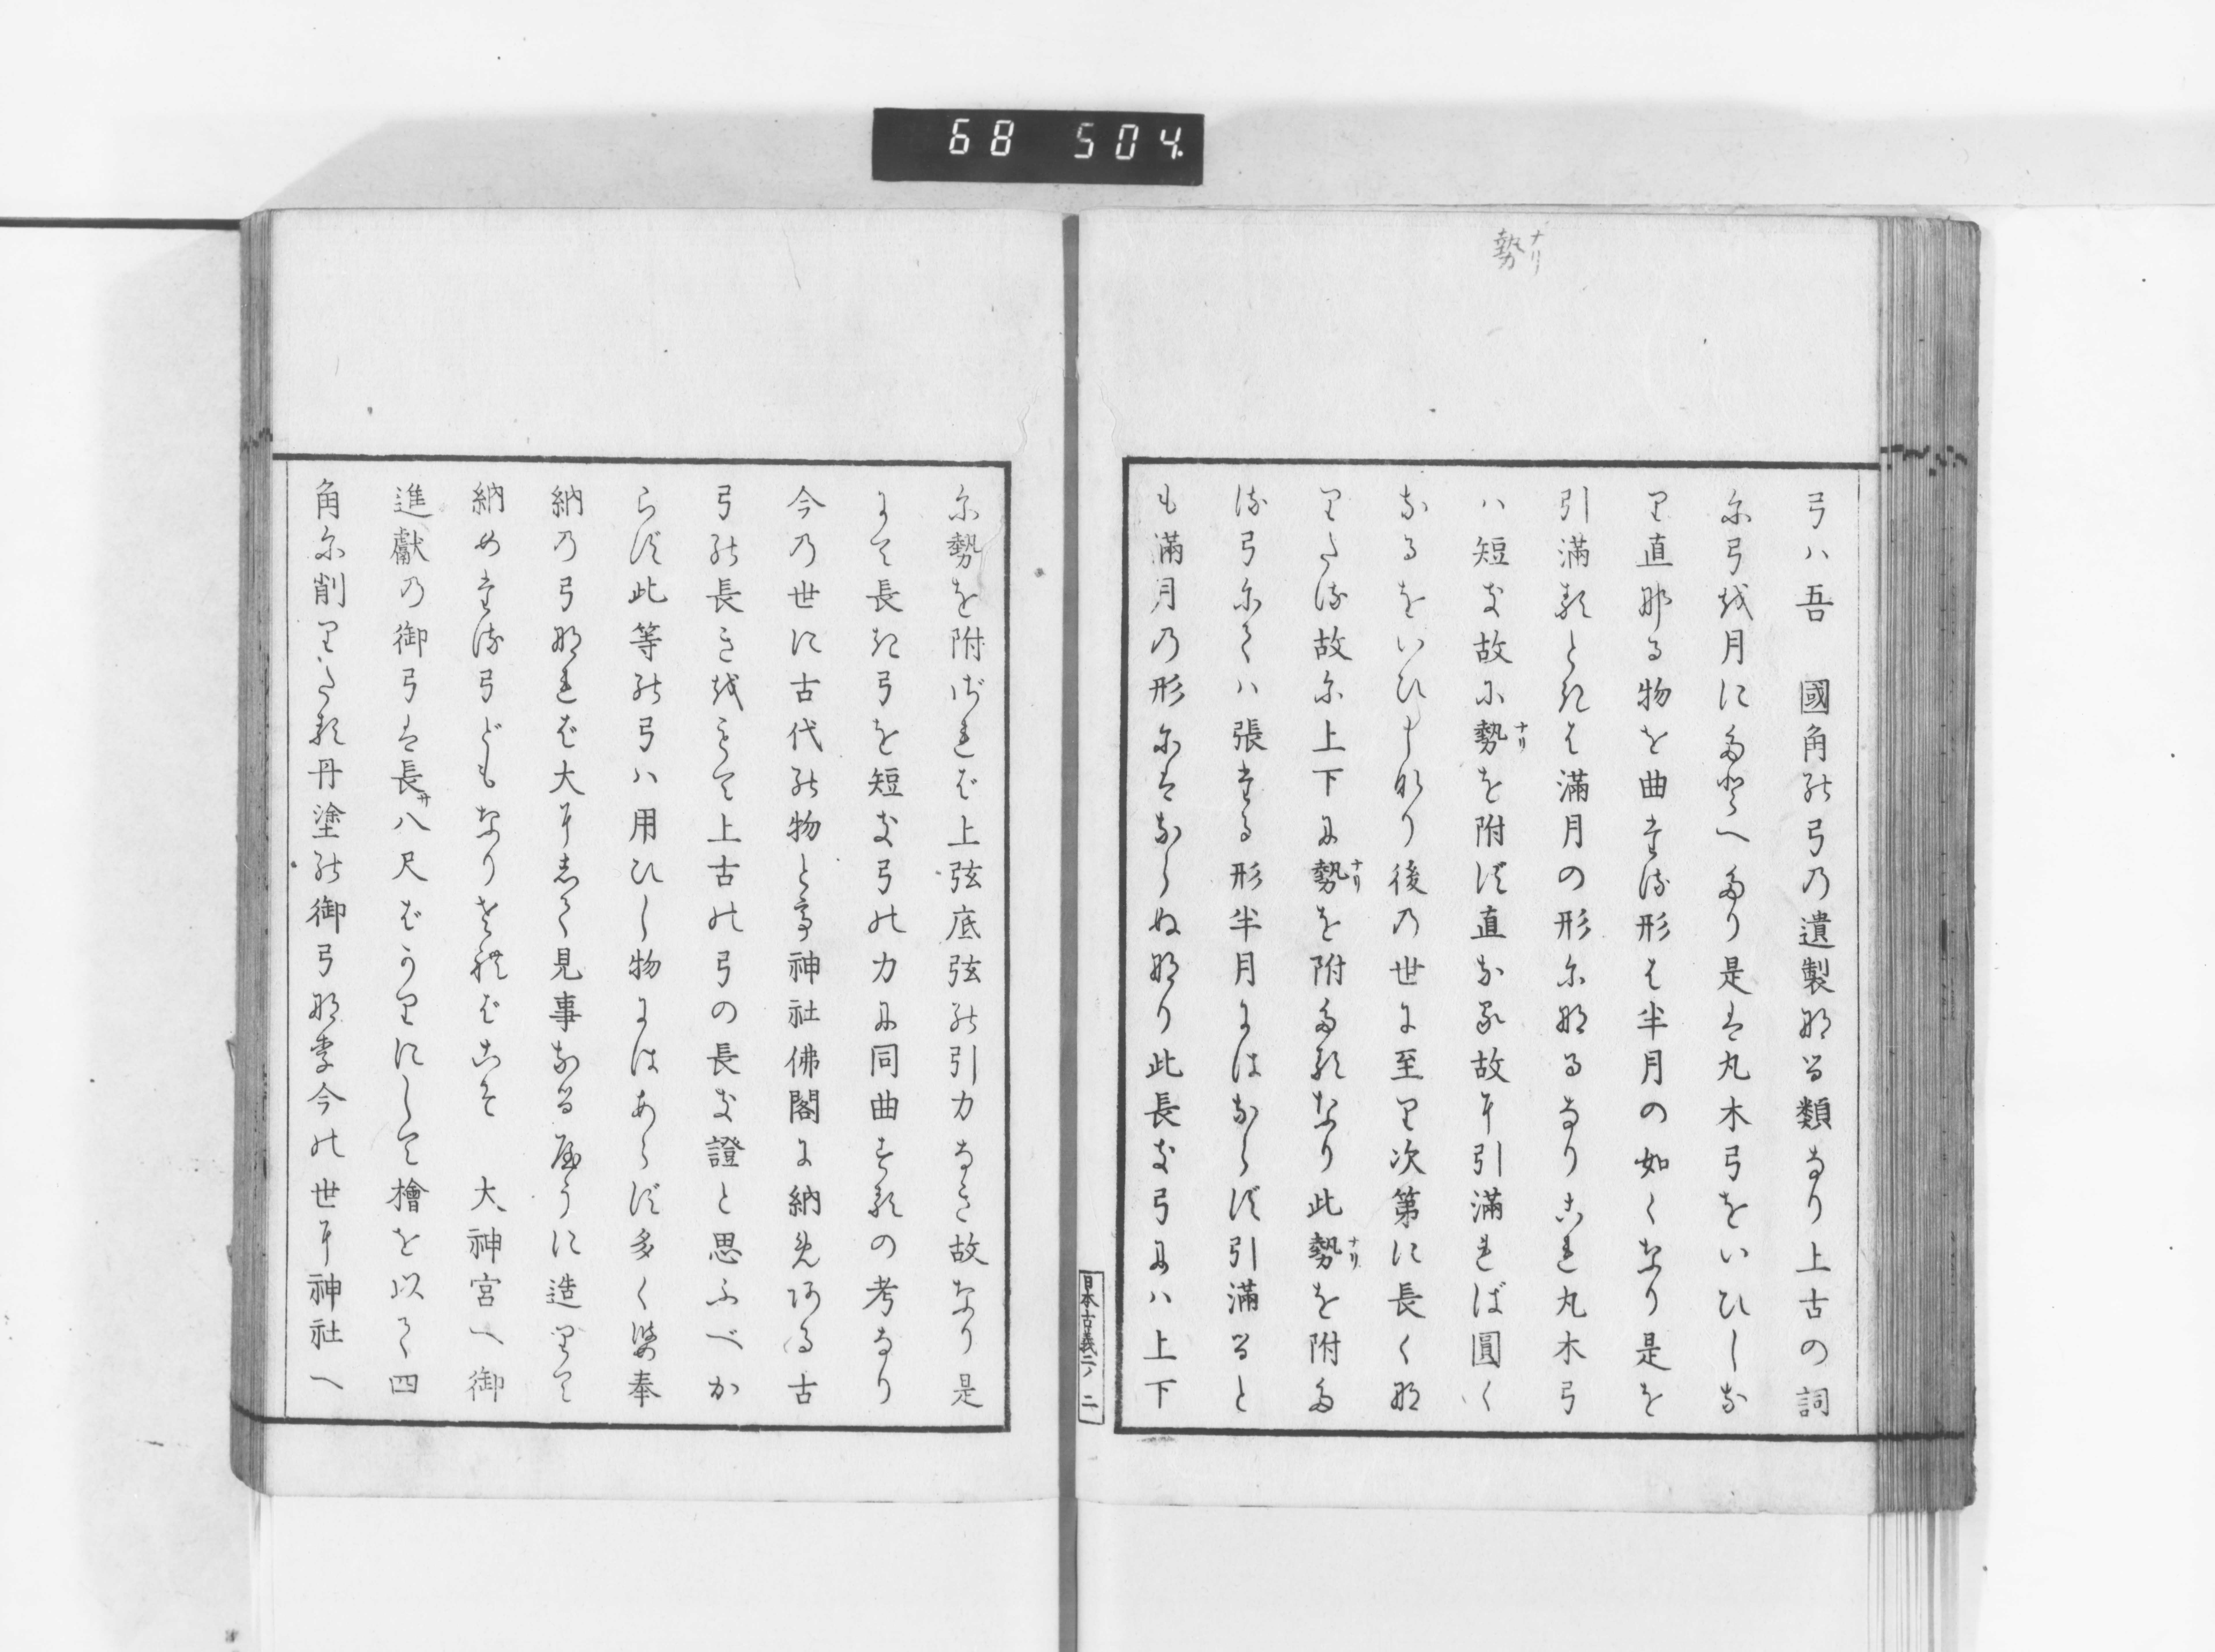 68 504
勢ナリ
弓ハ吾　國角の弓の遺製なる類なり上古の詞
に弓を月にたとへたり是は丸木弓をいひしな
り直なる物を曲たる形は半月の如くなり是を
引滿るときは滿月の形になるなりこれ丸木弓
ハ短き故に勢ナリを附ず直なる故に引滿れば圓く
なるをいひしなり後の世に至り次第に長くな
りたる故に上下に勢ナリを附たるなり此勢ナリを附た
る弓にてハ張たる形半月にはならず引滿ると
も滿月の形にはならぬなり此長き弓にハ上下
に勢を附ざれば上弦底弦の引力なき故なり是
にて長き弓を短き弓の力に同曲する の考なり
今の世に古代の物とて神社佛閣に納めある古
弓の長きをもて上古の弓の長き證と思ふべか
らず此等の弓ハ用ひし物にはあらず多く 奉
納の弓なれば大にして見事なるやうに造りて
納めたる弓どもなりさればこそ　大神宮へ御
進獻の御弓は長サ八尺ばかりにして檜を以て四
角に削りたる丹塗の御弓なり今の世に神社へ
日本古義二ノ　二